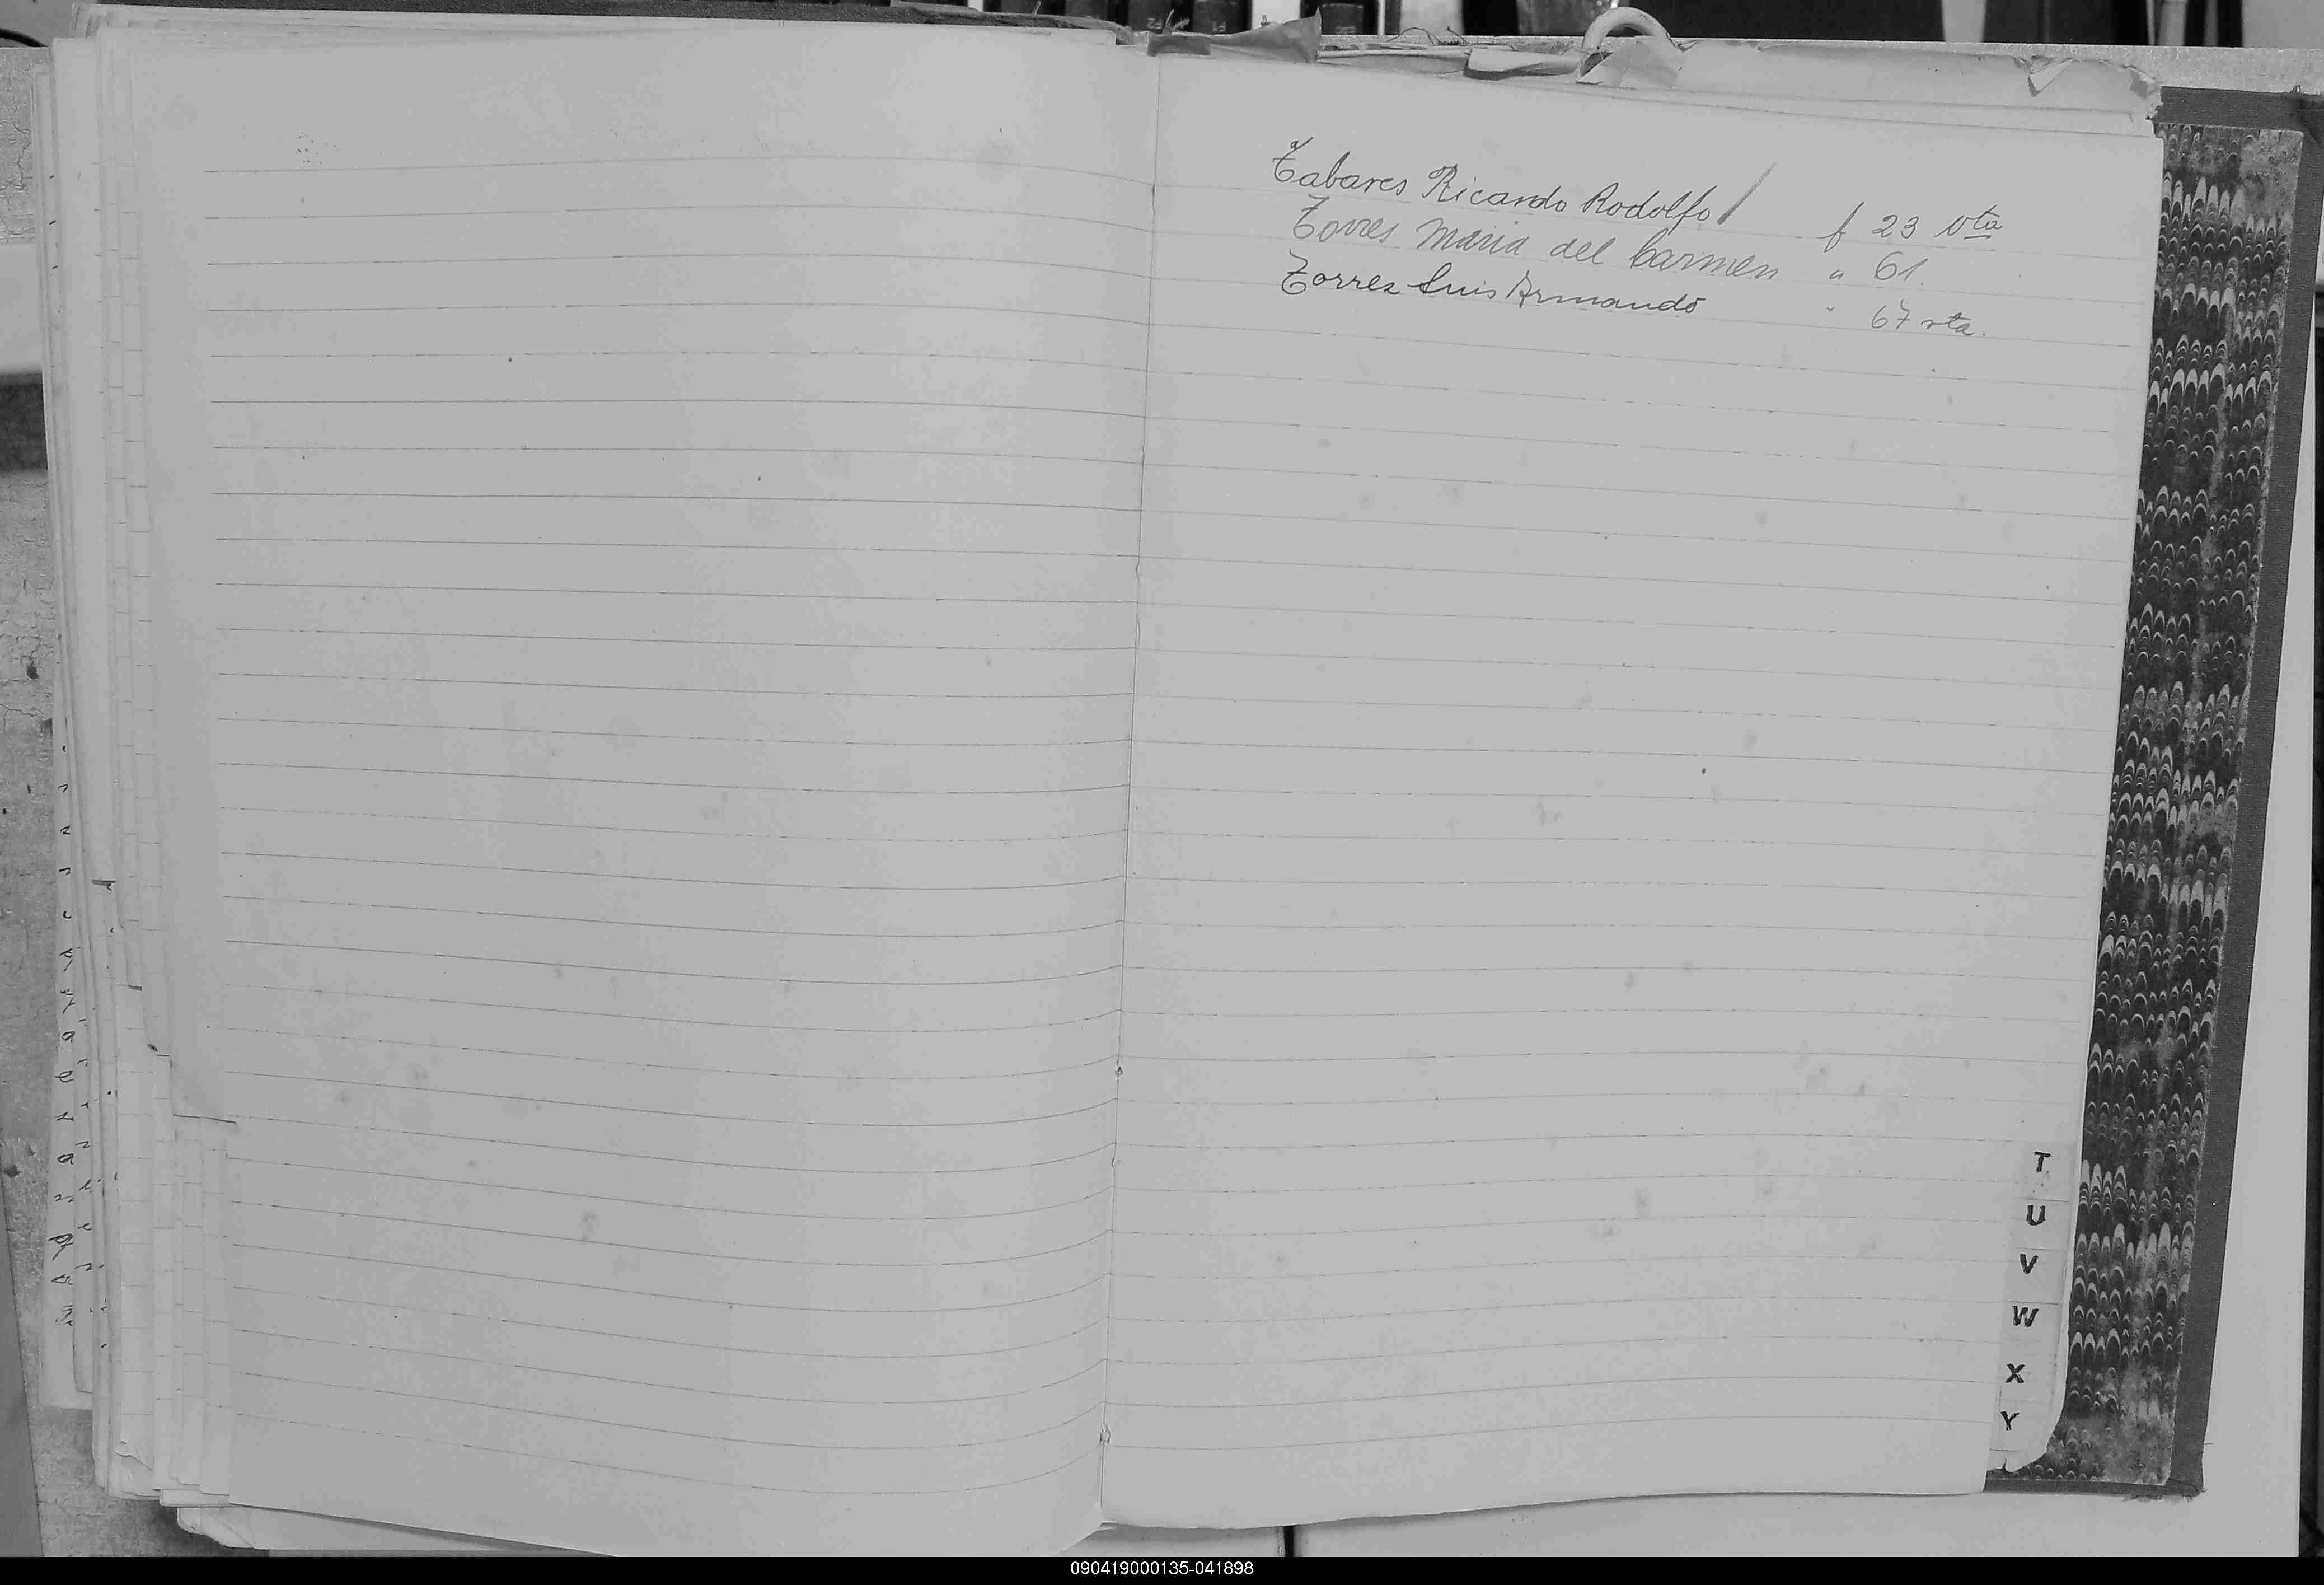 Tabares Ricardo Rodolfo / f 23 vta
Torres Maria del Carmen " 61.
Torres Luis Armando " 67 vta.
T
U
V
W
X
Y
090419000135-041898